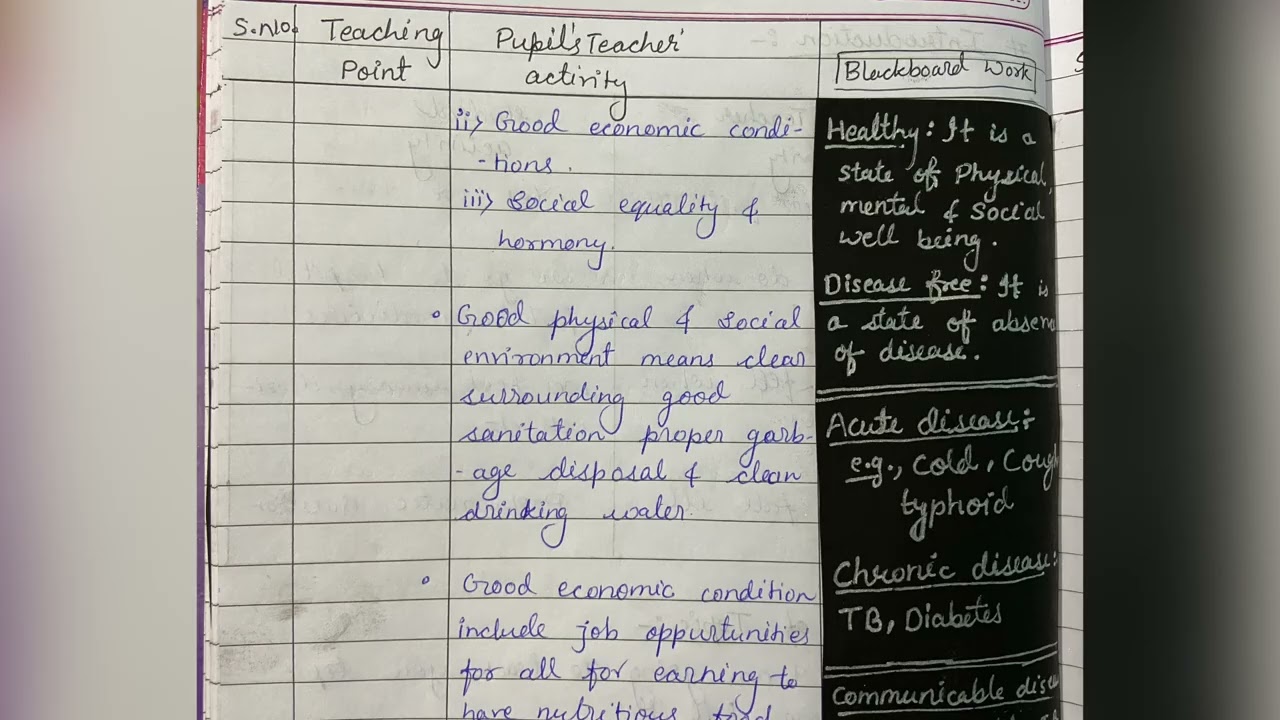 S.no.
Teaching
Point
Pupil's Teacher
activity
Blackboard Work
ii) Good economic condi-
-tions.
iii) Social equality &
hormony.
Good physical & social
environment means clear
surrounding good
sanitation proper garb-
-age disposal & clean
drinking water.
Good economic condition
include job oppurtunities
for all for earning to
have nutritious food
Healthy: It is a
state of Physical,
mental & Social
well being.
Disease free: It is
a state of absen
of disease.
Acute disease:
e.g., Cold, Cough
typhoid
Chronic disease:
TB, Diabetes
Communicable dise